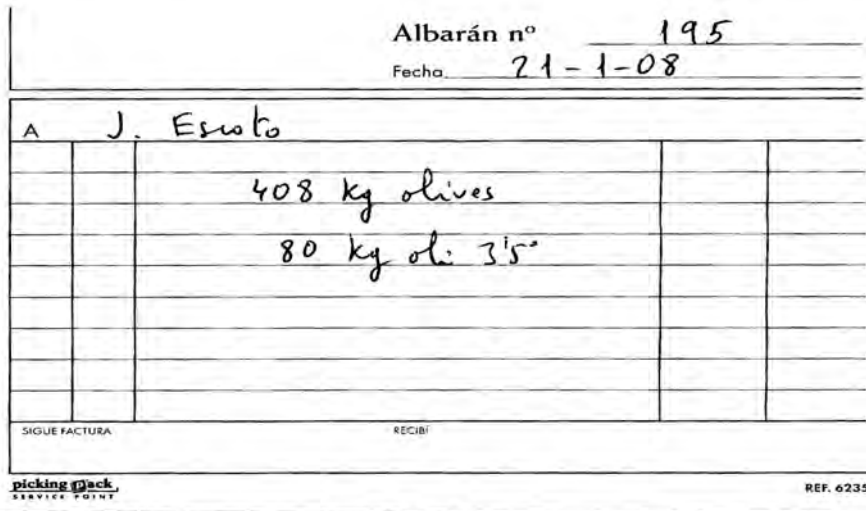 Albarán nº 195
Fecha 21-1-08
A J. Escoto
408 kg olives
80 kg oli 3'5º
SIGUE FACTURA RECIBÍ
picking pack REF. 6235
SERVICE POINT